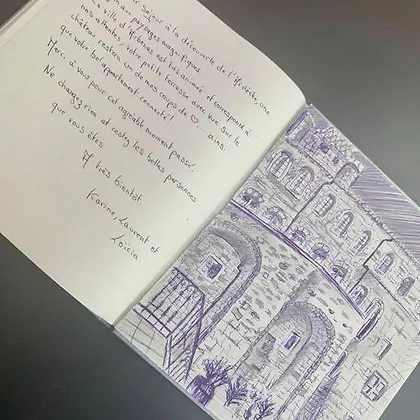 séjour à la découverte de l'Ardèche, une
paysages magnifiques
la ville d'Aubenas est très animée et correspond à
nos attentes, votre petite terrasse avec vue sur le
château restera un de mes coups de ♡... ainsi
que votre bel appartement connecté!
Merci à vous pour cet agréable moment passé.
Ne changez rien et restez les belles personnes
que vous êtes
A très bientôt
Karine, Laurent et
Loïcia